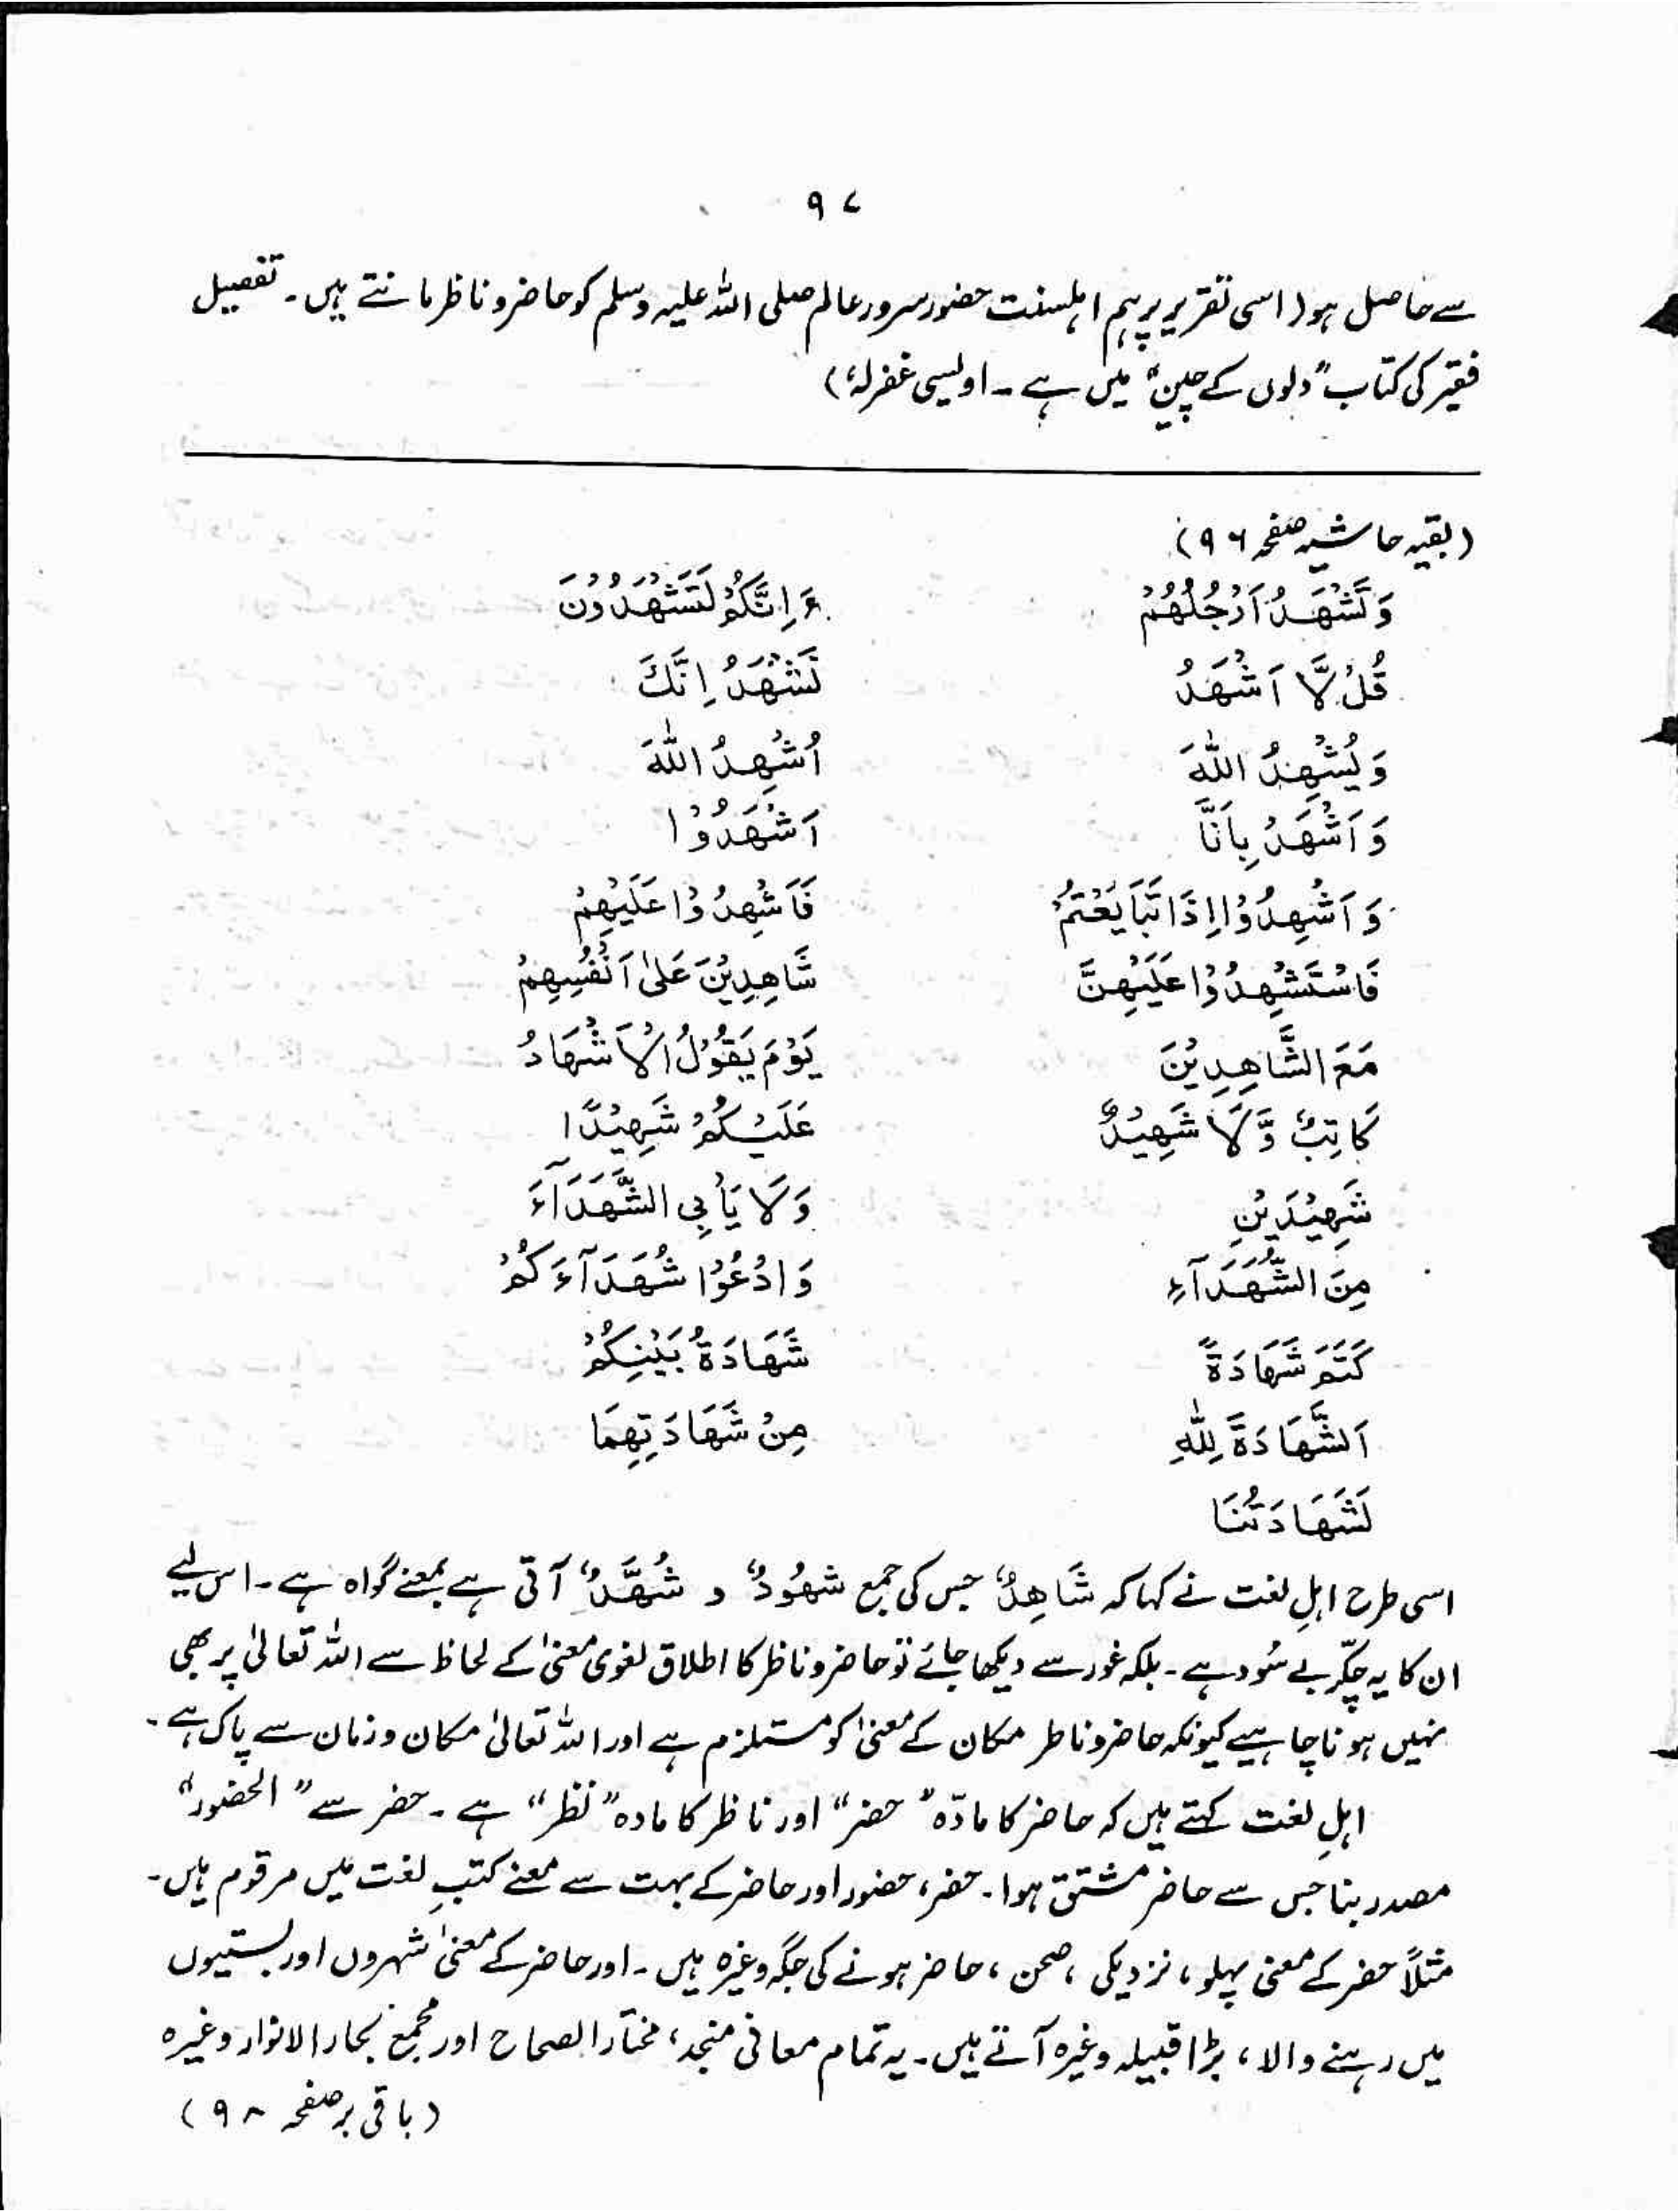 ۹۷
سے حاصل ہو (اسی تقریر پر ہم اہلسنت حضور سرور عالم صلی اللہ علیہ وسلم کو حاضر و ناظر مانتے ہیں۔ تفصیل
فقیر کی کتاب "دلوں کے چین" میں ہے۔ اویسی غفرلہٗ)
(بقیہ حاشیہ صفحہ ۹۶)
وَتَشْهَدُ اَرْجُلُهُمْ ءَاِنَّكُمْ لَتَشْهَدُوْنَ
قُلْ لَّا اَشْهَدُ نَشْهَدُ اِنَّكَ
وَيُشْهِدُ اللهَ اُشْهِدُ اللهَ
وَاَشْهَدُ بِاَنَّا اَشْهَدُوْا
وَاَشْهِدُوْا اِذَا تَبَايَعْتُمْ فَاَشْهِدُوْا عَلَيْهِمْ
فَاسْتَشْهِدُوْا عَلَيْهِنَّ شَاهِدِيْنَ عَلٰى اَنْفُسِهِمْ
مَعَ الشَّاهِدِيْنَ يَوْمَ يَقُوْلُ الْاَشْهَادُ
كَاتِبٌ وَّلَا شَهِيْدٌ عَلَيْكُمْ شَهِيْدًا
شَهِيْدَيْنِ وَلَا يَأْبِى الشُّهَدَآءَ
مِنَ الشُّهَدَآءِ وَادْعُوْا شُهَدَآءَكُمْ
كَتَمَ شَهَادَةً شَهَادَةُ بَيْنِكُمْ
اَلشَّهَادَةَ لِلّٰهِ مِنْ شَهَادَتِهِمَا
لَشَهَادَتُنَا
اسی طرح اہلِ لغت نے کہا کہ شَاهِدٌ جس کی جمع شهُوْدٌ و شُهَّدٌ آتی ہے بمعنے گواہ ہے۔ اس لیے
ان کا یہ چکّر بے سُود ہے۔ بلکہ غور سے دیکھا جائے تو حاضر و ناظر کا اطلاق لغوی معنیٰ کے لحاظ سے اللہ تعالیٰ پر بھی
نہیں ہونا چاہیے کیونکہ حاضر و ناطر مکان کے معنیٰ کو مستلزم ہے اور اللہ تعالیٰ مکان و زمان سے پاک ہے۔
اہلِ لغت کہتے ہیں کہ حاضر کا مادّہ "حضر" اور ناظر کا مادہ "نظر" ہے۔ حضر سے "الحضور"
مصدر بنا جس سے حاضر مشتق ہوا۔ حضر، حضور اور حاضر کے بہت سے معنے کتبِ لغت میں مرقوم ہیں۔
مثلاً حضر کے معنی پہلو، نزدیکی، صحن، حاضر ہونے کی جگہ وغیرہ ہیں۔ اور حاضر کے معنیٰ شہروں اور بستیوں
میں رہنے والا، بڑا قبیلہ وغیرہ آتے ہیں۔ یہ تمام معانی منجد، مختار الصحاح اور مجمع بحار الانوار وغیرہ
(باقی بر صفحہ ۹۸)